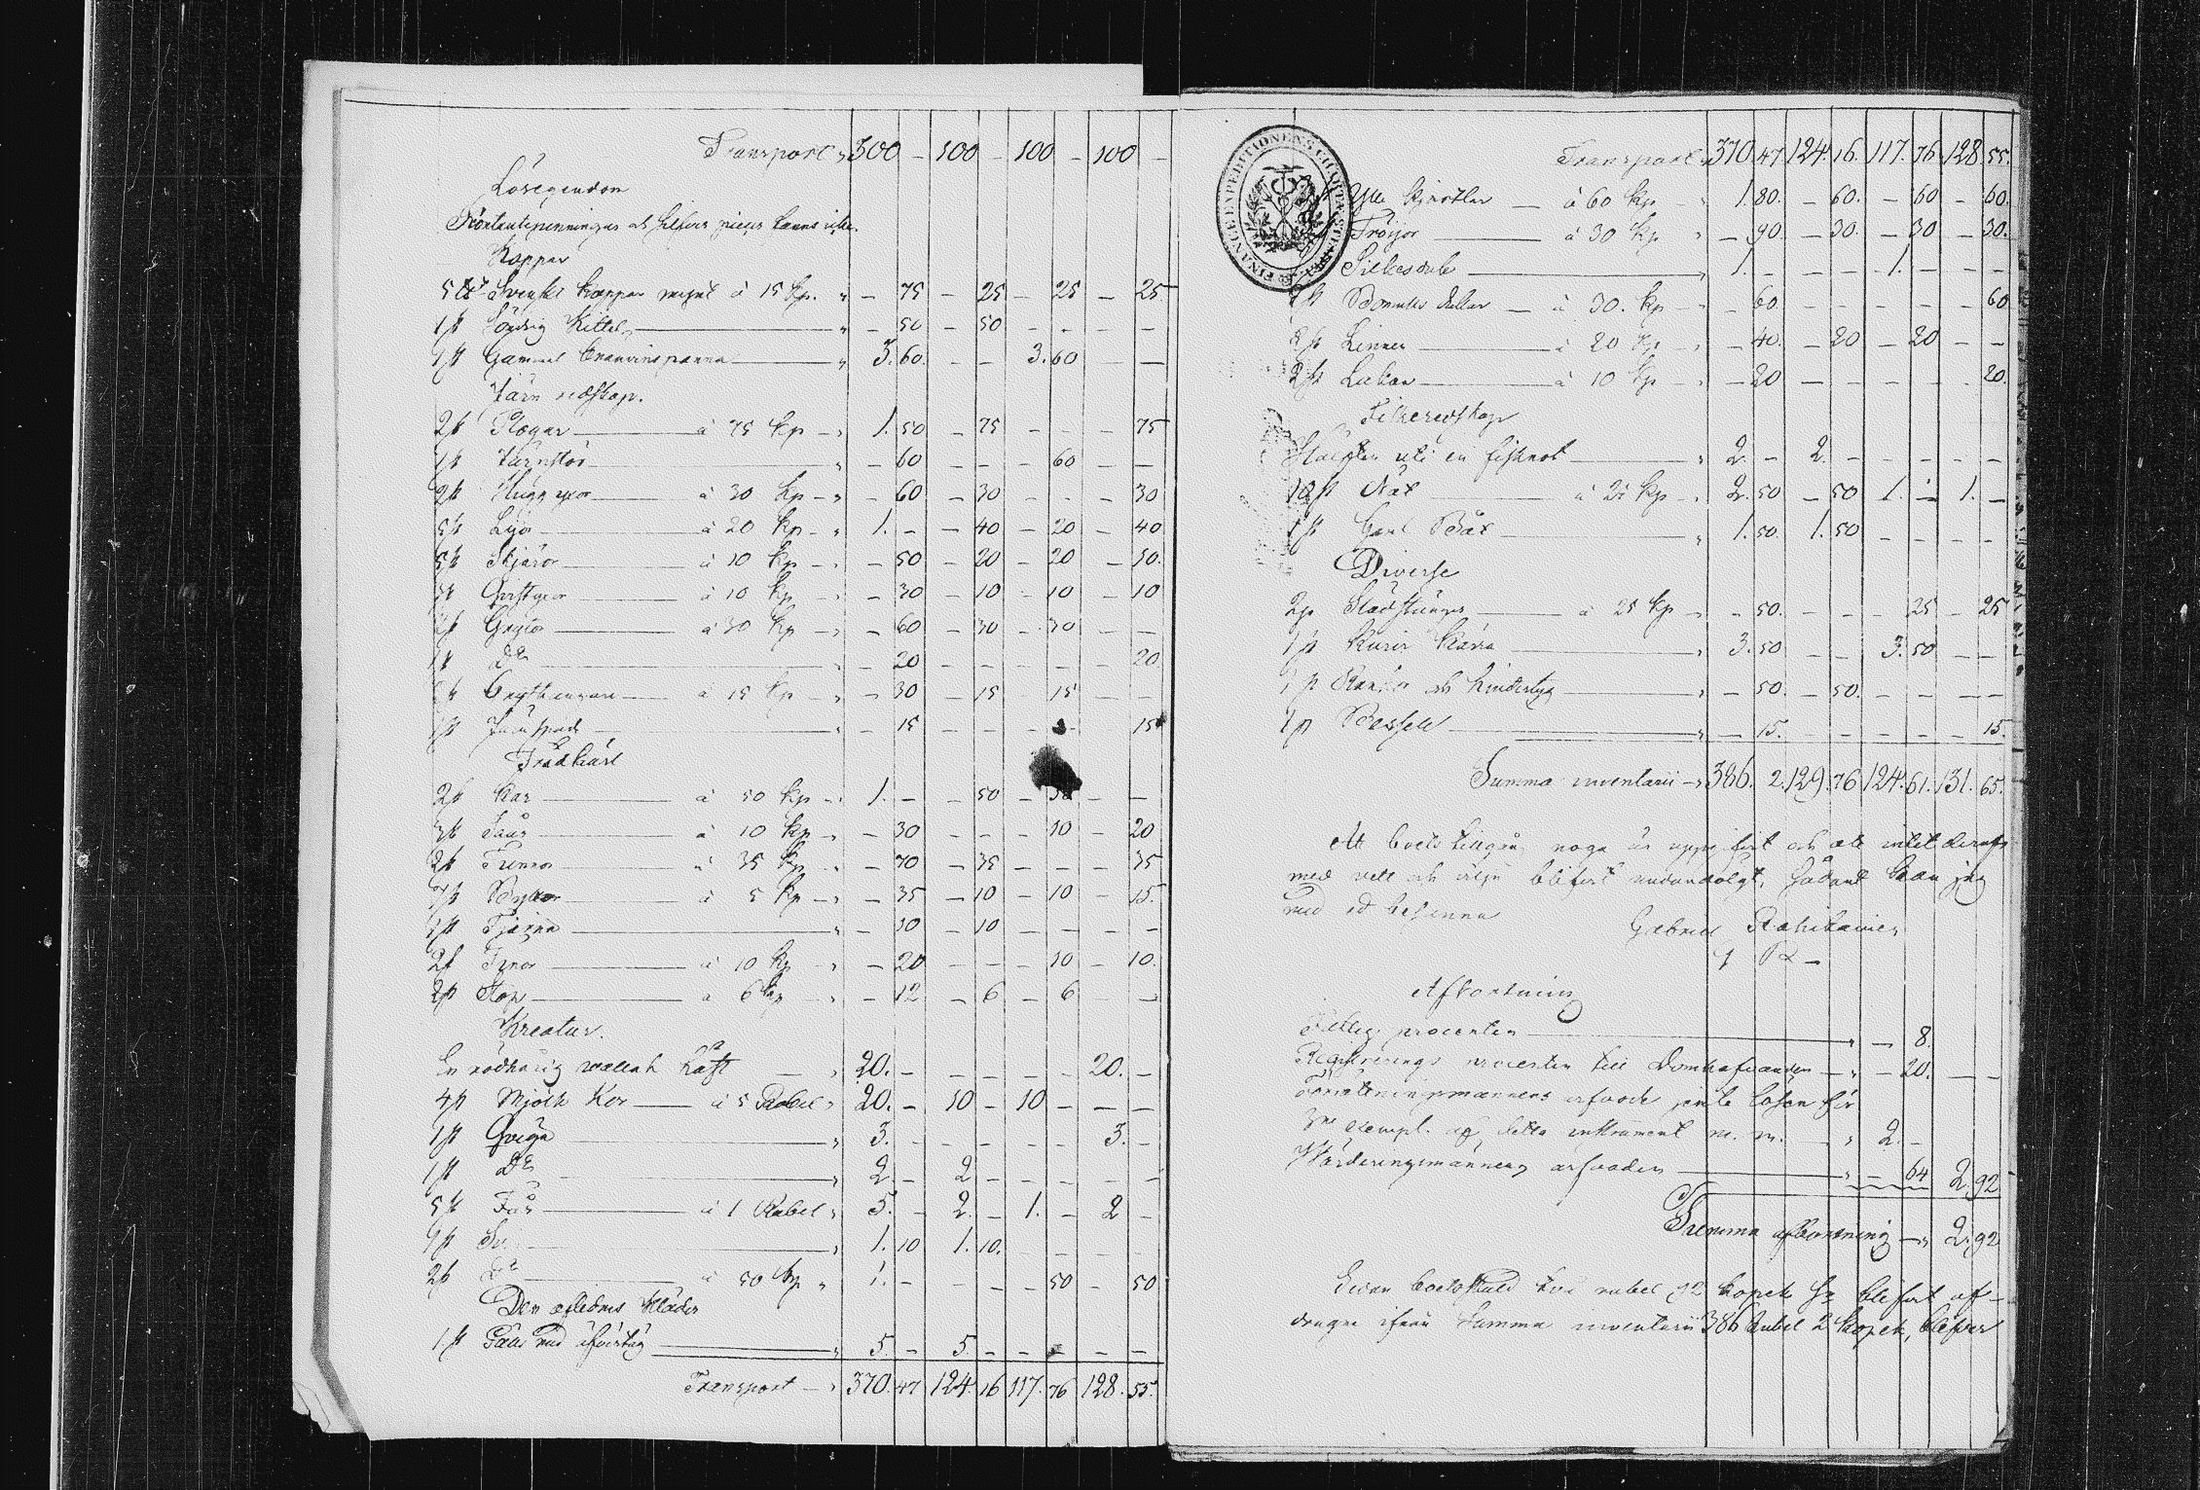 Transport „ 300 – 100 – 100 – 100 –
Lösegendom
Kontantepenningar och silfver pieçer fanns icke.
Koppar
5 ℔ Svenskt koppar mynt à 15 kp. „ – 75 – 25 – 25 – 25
1 st Kittel „ – 50 – 50 – – – –
1 st Gammal brännvinspanna „ 3. 60. – – 3. 60 –
Järn redskap.
2 st Plogar à 75 kp – „ 1. 50 – 75 – – – 75
1 st Järnstör „ – 60 – – – 60 – –
2 st Hugg yxor à 30 kp – „ – 60 – 30 – – – 30
5 st Lijor à 20 kp – „ 1. – – 40 – 20 – 40
5 st Skjäror à 10 kp – „ – 50 – 20 – 20 – 10.
3 st à 10 kp – „ – 30 – 10 – 10 – 10
2 st Grytor à 30 kp – „ – 60 – 30 – 30 – –
1 st Do „ – 20 – – – – – 20
2 st à 15 kp „ – 30 – 15 15 – –
1 st Järnspade „ – 15 – – – – 15
Trädkäril
2 st Kar à 50 kp – „ 1. – – 50 – 50 – –
3 st à 10 kp – „ – 30 – – – 10 – 20
2 st Tunnor à 35 kp – „ – 70 – 35 – – – 35
7 st Byttor à 5 kp – „ – 35 – 10 – 10 – 15.
1 st Tjärna „ – 10 – 10 – – – –
2 st à 10 kp „ – 20 – – – 10 – 10.
2 st Stop à 6 kp „ – 12 – 6 – 6 – –
Kreatur.
En rödhårig vallack häst „ 20. – – – – – 20. –
4 st Mjölk Kor à 5 Rubel „ 20. – 10 – 10 – – –
1 st Qviga „ 3. – – – – – 3. –
1 st Do „ 2 – 2 – – – – –
5 st Får à 1 Rubel „ 5. – 2. – 1. – 2 –
1 st „ 1. 10 1. 10. – – – –
2 st Do à 50 kp „ 1. – – – – 50 – 50
Den aflidnes Kläder
1 st med öfvertyg „ 5 – 5 – – – – –
Transport – „ 370. 47 124. 16 117. 76 128. 55.
FINANCE EXPEDITIONENS CHARTÆ
Transport „ 370. 47 124. 16. 117. 76 128 55.
Ylle Kjortlar à 60 kp – „ 1. 80. – 60. – 60 – 60.
Tröijor à 30 kp „ – 90. – 30. – 30 – 30.
Silkesduk „ 1. – – – 1. – – –
2 st Bomulls dukar à 30. kp – „ – 60. – – – – – 60
2 st Linnen à 20 kp – „ – 40. – 20 – 20 – –
2 st Lakan à 10 kp – „ – 20 – – – – – 20.
Fiskredskap
uti en fisknot „ 2 – 2. – – – – –
10 st Nät à 25 kp – „ 2. 50 – 50 1. – 1. –
1 st Gaml Båt „ 1. 50. 1. 50 – – – –
Diverse
2 st à 25 kp – „ – 50. – – – 25 – 25
1 st Kärra „ 3. 50 – – 3. 50 – –
1 st Rankor och „ – 50. – 50. – – – –
1 st „ – 15. – – – – – 15.
Summa inventarii – „ 386. 2. 129. 76 124. 61. 131. 65.
Att boets tillgång noga är uppgifvit och att intet deraf
med vett och vilja blifvit undandolgt, sådant kan jag
med ed besanna Gabriel
Afkortning
Fattig procenten „ – 8.
Registrerings procenten till Domhafvanden „ – 20. –
Förrättningsmannens arfvode jemte lösen för
exempl. af detta instrument m. m. – „ 2. –
Värderingsmännens arfvoden „ – 64 2. 92
Summa afkortning – „ 2. 92
Enär boets skuld två rubel 92 kopek Sr. blifvit af-
dragen ifrån Summa inventarii 386 Rubel 2 kopek, blifver